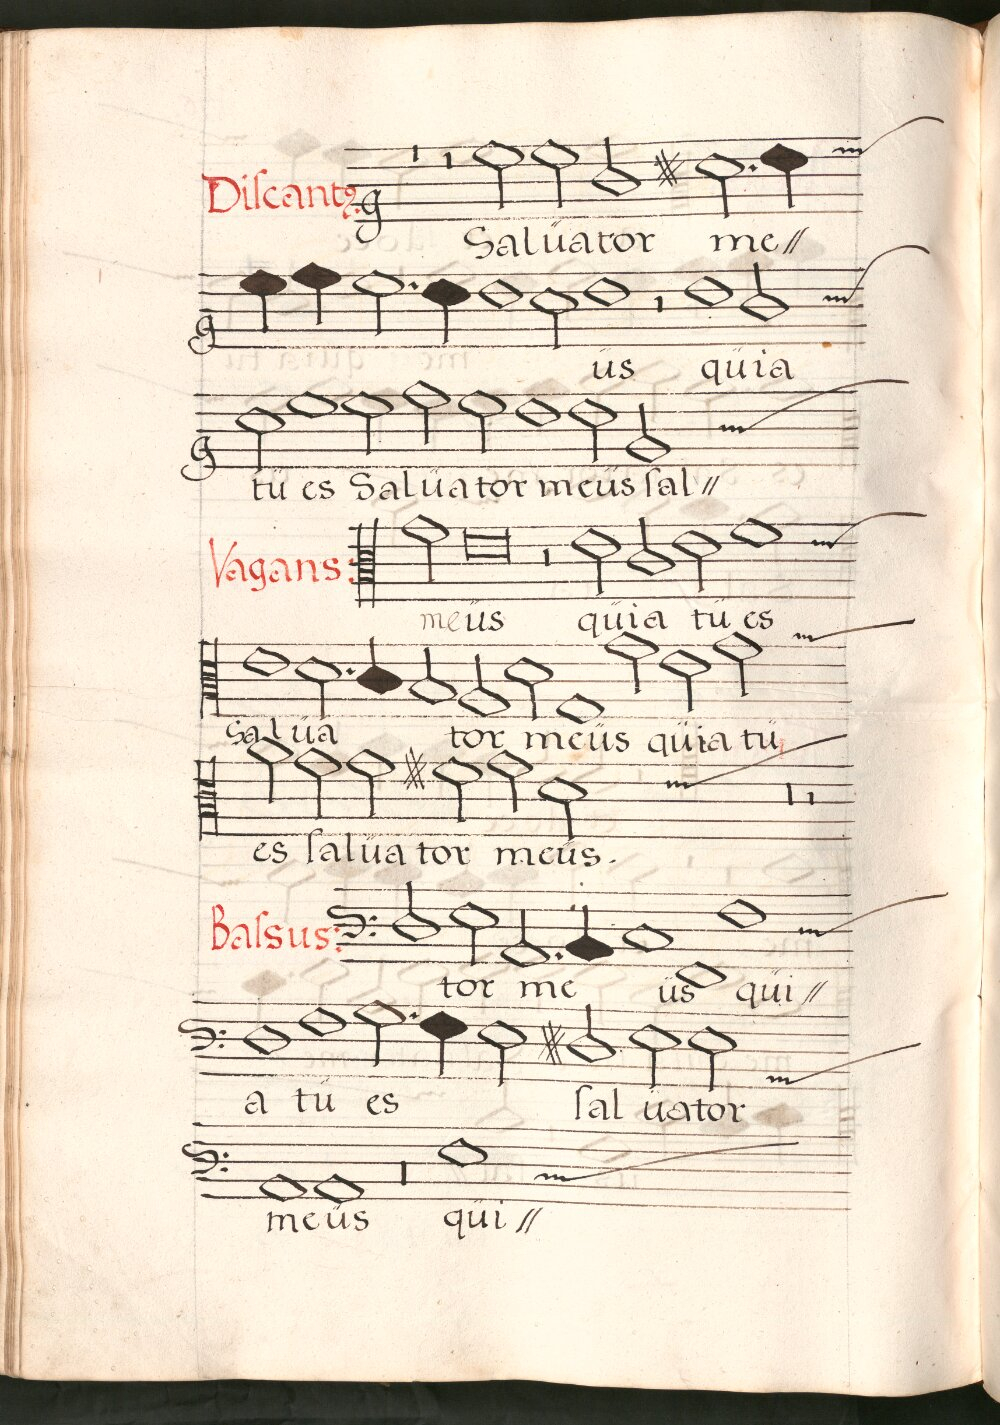 Diſcantꝰ:
Salüator me//
üs qüia
tü es Salüator meüs ſal//
Vagans:
meüs qüia tü es
Salüa tor meüs qüia tü
es ſalüator meüs.
Baſsus:
tor me üs qüi//
a tü es ſal üator
meüs qüi//